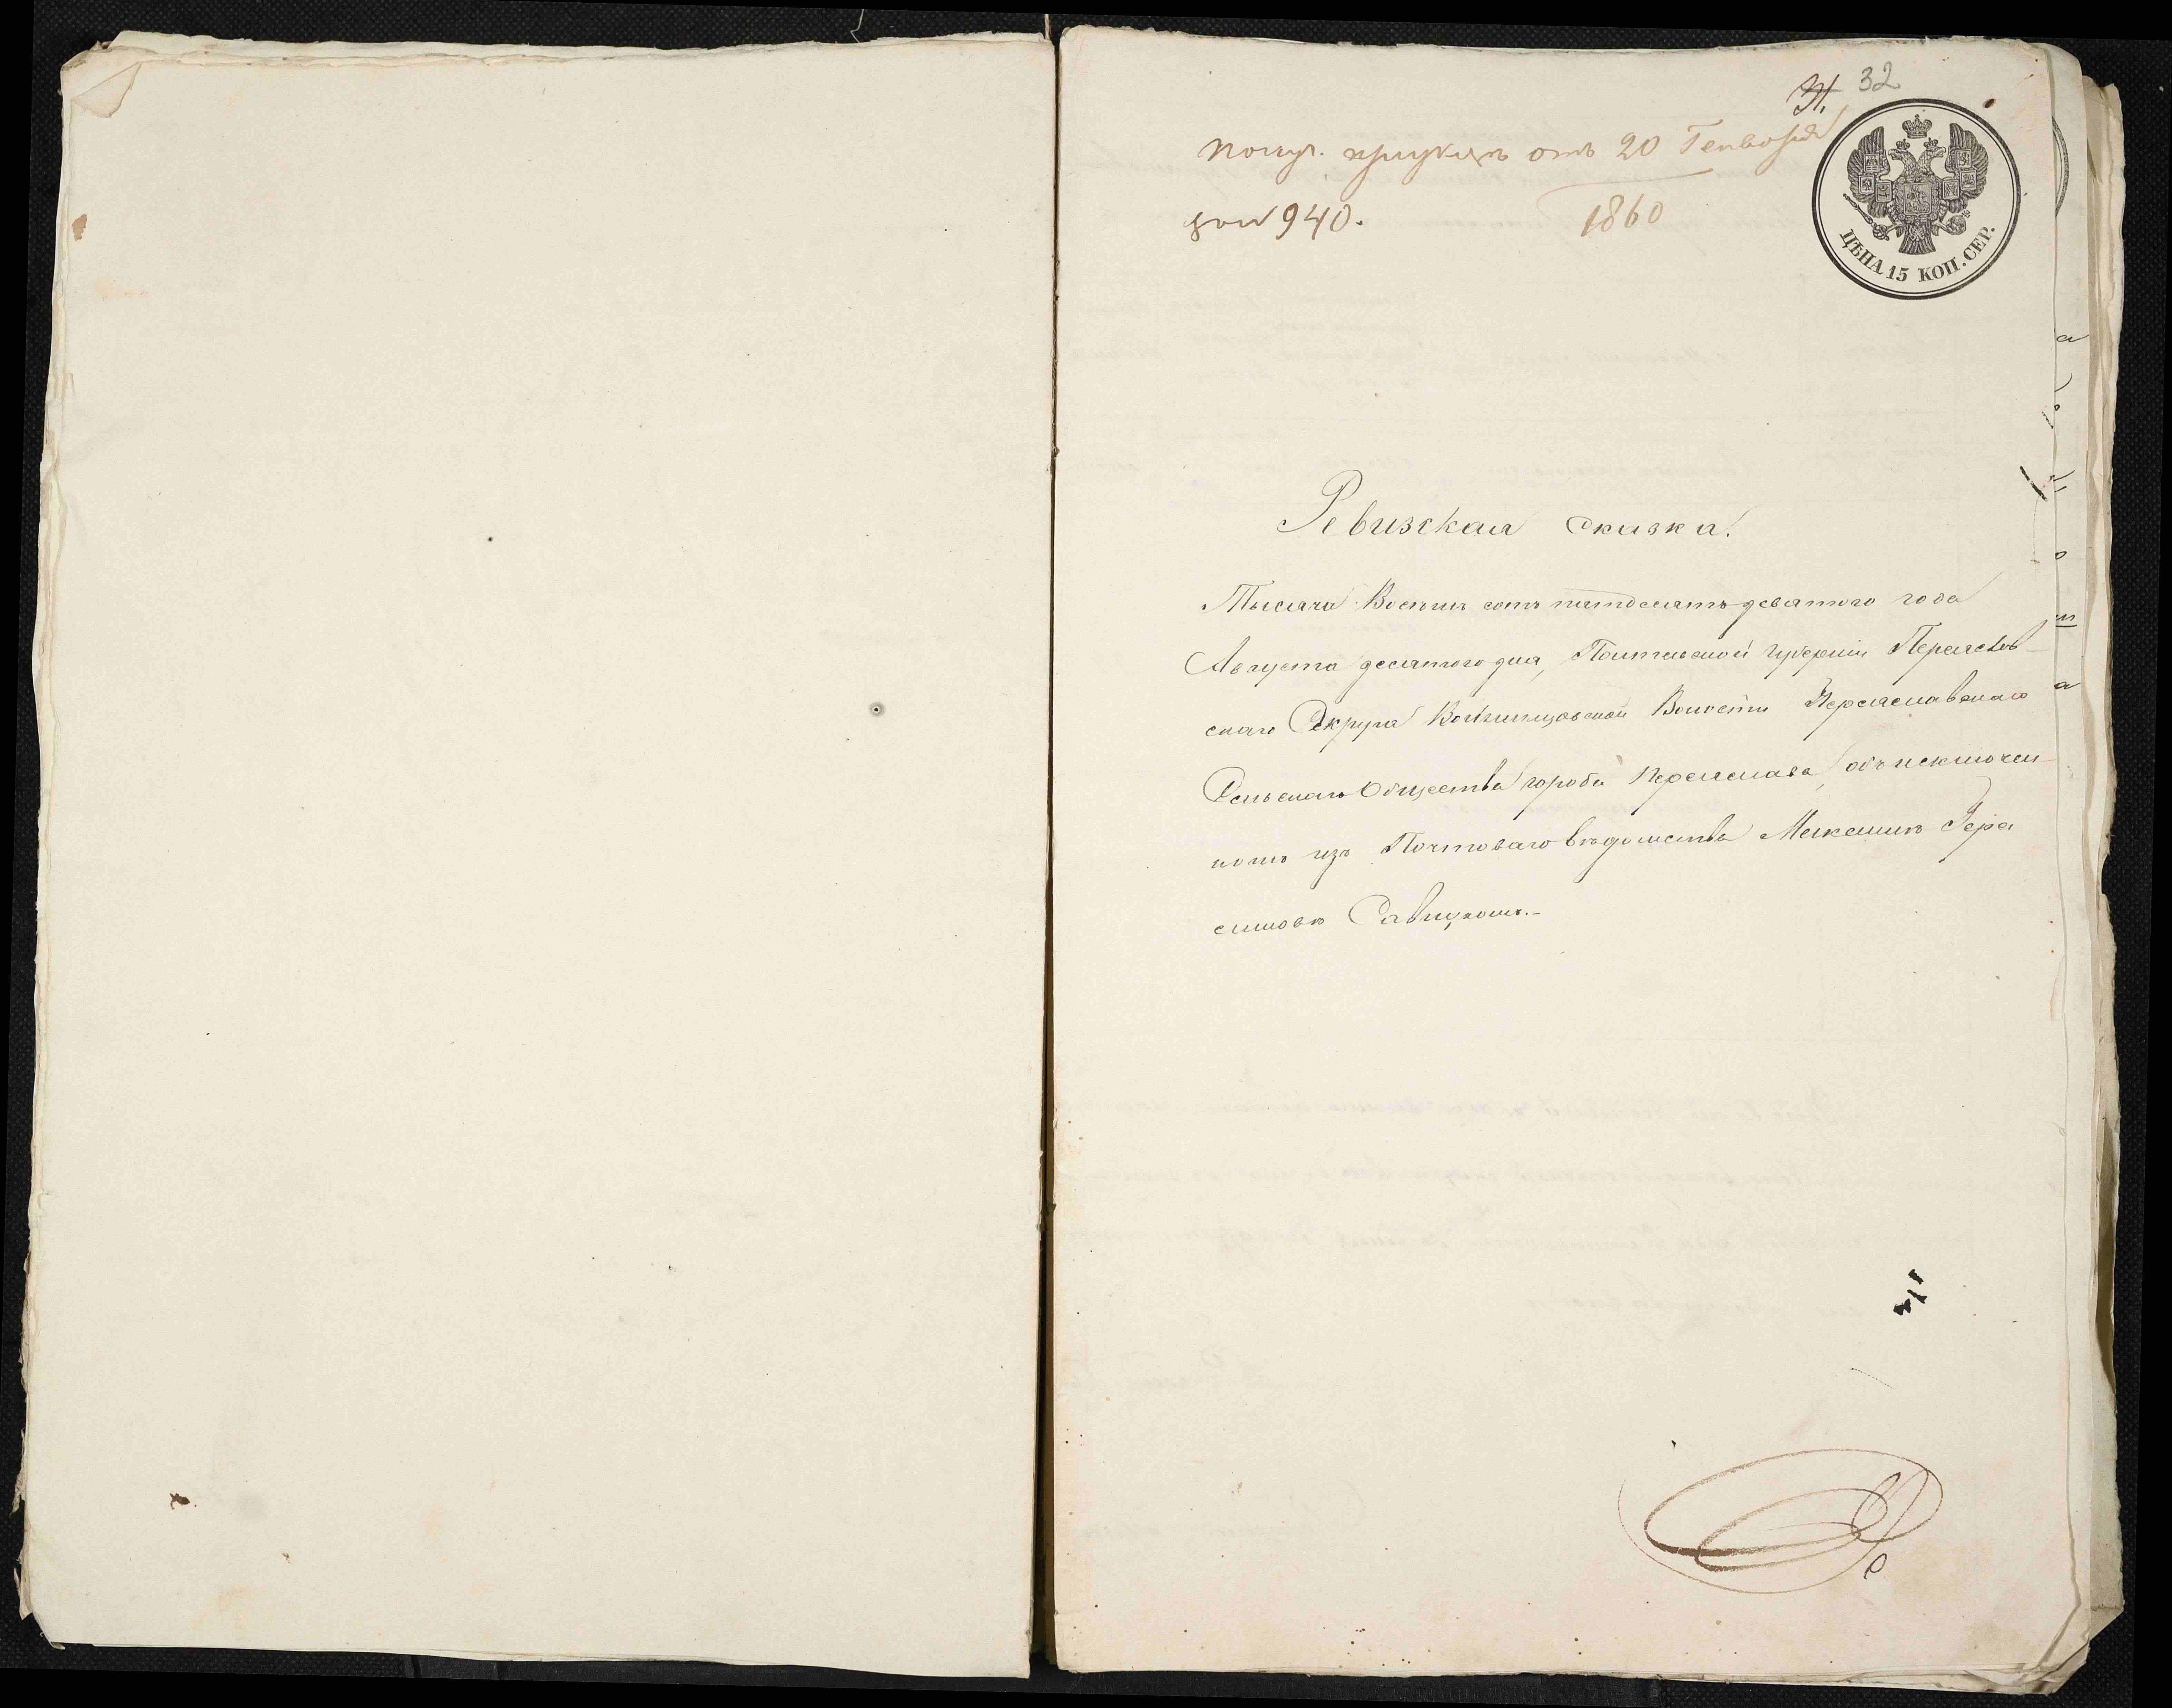 31. 32
получ. отъ 20 Генваря
1860
940.
ЦѢНА 15 КОП. СЕР.
Ревизская сказка.
Тысяча Восемь сотъ пятдесятъ девятого года
Августа десятого дня, Полтавской губерніи Переяслов-
скаго Округа Волости Переяславскаго
Сельскаго Общества города Переяслава, объ исключен-
номъ изъ Почтоваго вѣдомства Максимѣ Гера
симовѣ Савицкомъ.-